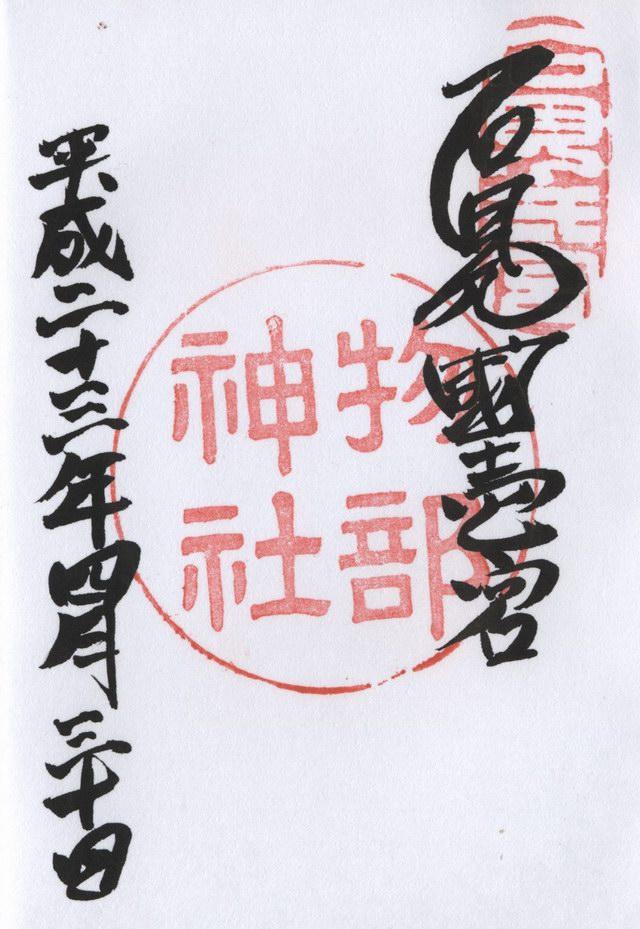 石見國壱宮
物部
神社
平成二十三年四月三十日